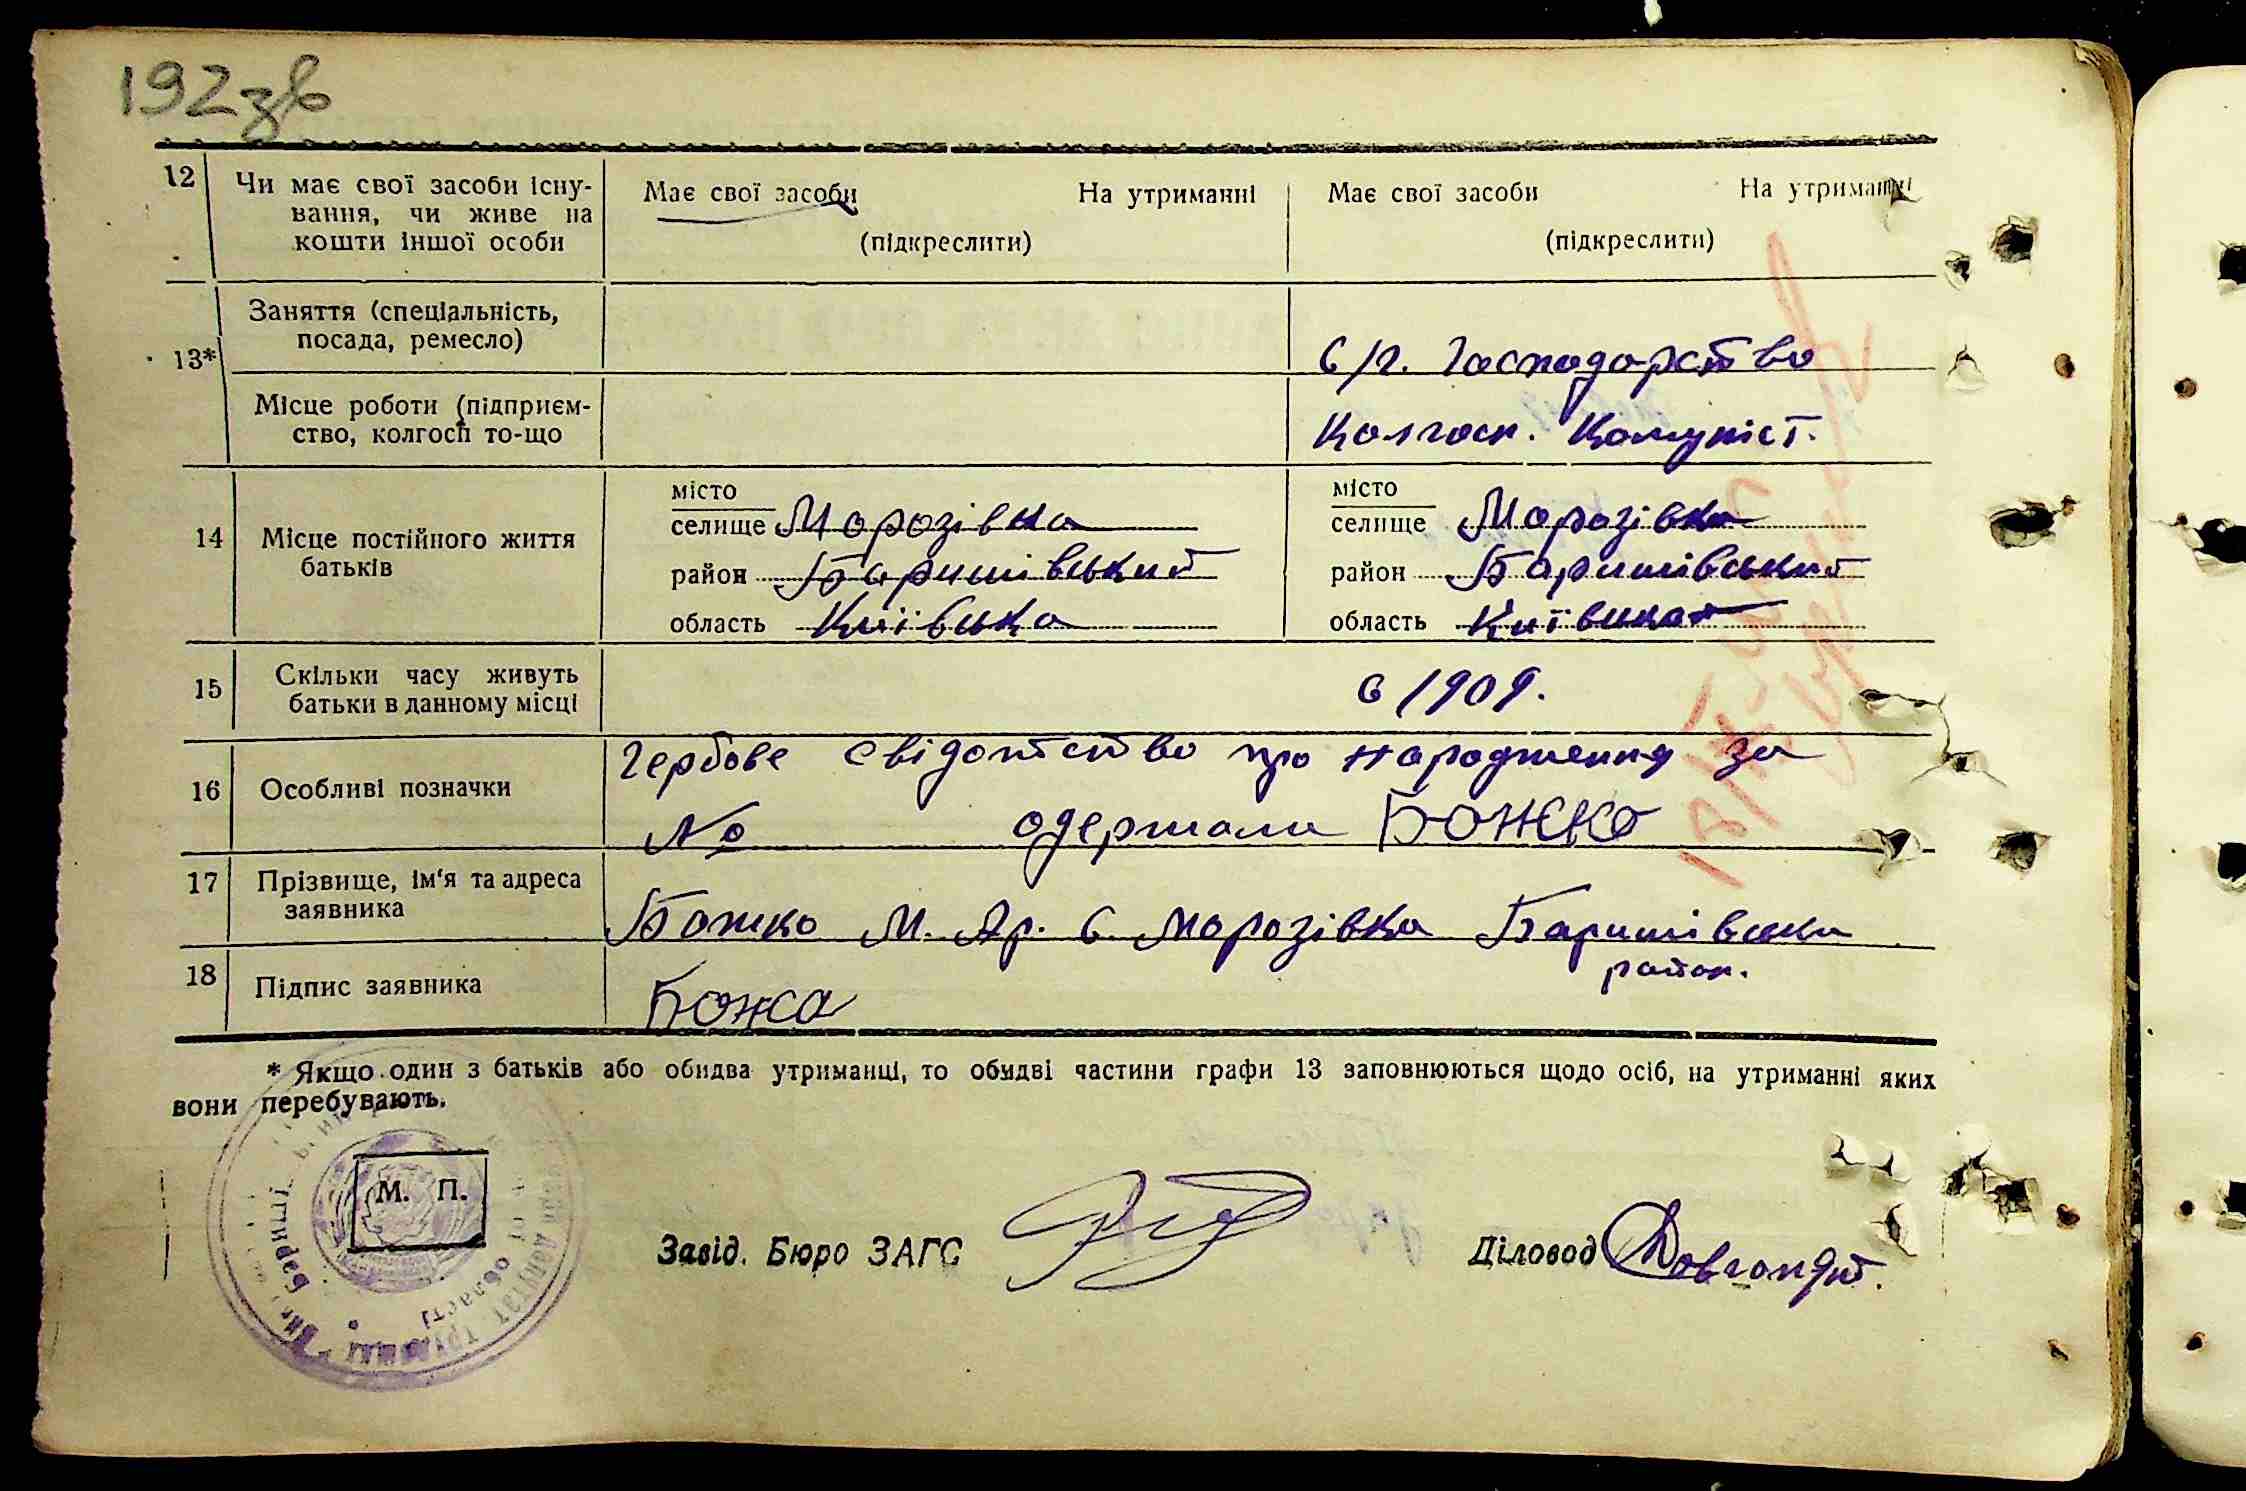 192зв
12 Чи має свої засоби існу-
вання, чи живе на
кошти іншої особи
Має свої засоби На утриманні
(підкреслити)
Має свої засоби На утриманні
(підкреслити)
13* Заняття (спеціальність,
посада, ремесло)
с/г. Господарство
Місце роботи (підприєм-
ство, колгосп то-що
Колгосп. Комуніст.
14 Місце постійного життя
батьків
місто
селище Морозівка
район Баришівський
область Київська
місто
селище Морозівка
район Баришівський
область Київська
15 Скільки часу живуть
батьки в данному місці
с 1909.
16 Особливі позначки
Гербове свідотство про народження за
№ одержала БОЖКО
17 Прізвище, ім'я та адреса
заявника
Божко М. Яр. с. Морозівка Баришівськи
район.
18 Підпис заявника
Божка
* Якщо один з батьків або обидва утриманці, то обидві частини графи 13 заповнюються щодо осіб, на утриманні яких
вони перебувають.
М. П.
Завід. Бюро ЗАГС
Діловод